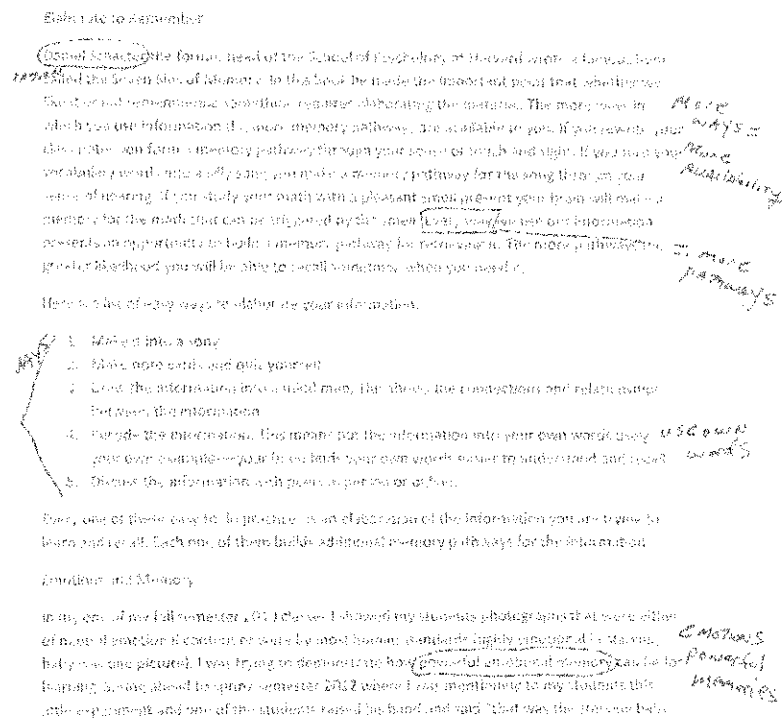 Elaborate to Remember
Daniel Schacter, the former head of the School of Psychology at Harvard wrote a famous book
called the Seven Sins of Memory. In this book he made the important point that whether we
like it or not remembering something requires elaborating the material. The more ways in
More ways =
which you use information the more memory pathways are available to you. If you rewrite your
More availability
class notes you form a memory pathway through your sense of touch and sight. If you turn your
vocabulary words into a silly song you make a memory pathway for the song through your
sense of hearing. If you study your math with a pleasant smell present your brain will make a
memory for the math that can be triggered by the smell. Every way we use our information
presents an opportunity to build a memory pathway for retrieving it. The more pathways the
= more pathways
greater likelihood you will be able to recall something when you need it.
Here is a list of easy ways to elaborate your information.
ways
1. Make it into a song
2. Make note cards and quiz yourself
3. Draw the information into a mind map. This shows the connections and relationships
between the information
4. Recode the information. This means put the information into your own words using
use own words
your own words easier to understand and recall
5. Discuss the information with peers in person or online.
Every one of these easy to do practices is an elaboration of the information you are trying to
learn and recall. Each one of them builds additional memory pathways for the information
Emotions and Memory
In my one of my fall semester classes I showed my students photographs that were either
of neutral emotional content or were by most human standards highly emotional
emotions powerful memories
baby was one picture). I was trying to demonstrate how powerful emotional memory can be for
learning. ahead to spring semester 2012 where I was mentioning to my students this
little experiment and one of the students raised his hand and said "that was the